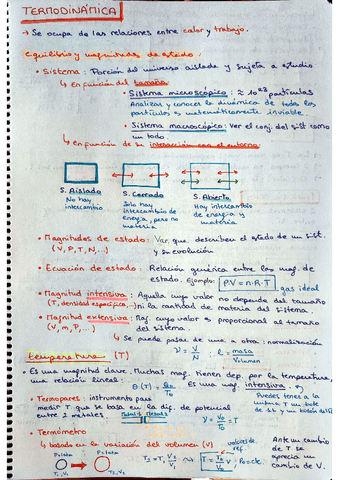 TERMODINÁMICA
→ Se ocupa de las relaciones entre calor y trabajo.
Equilibrio y magnitudes de estado:
• Sistema: Porción del universo aislada y sujeta a estudio
↳ en función del tamaño
• Sistema microscópico: ≈ 10²³ partículas
Analizar y conocer la dinámica de todas las
partículas es matemáticamente inviable.
• Sistema macroscópico: Ver el conj. del sist como
un todo.
↳ en función de su interacción con el entorno
S. Aislado
No hay
intercambio
S. Cerrado
Solo hay
intercambio de
energía, pero no
materia
S. Abierto
Hay intercambio
de energía y
materia
• Magnitudes de estado: Var. que describen el estado de un sist.
(V, P, T, N, ...) y su evolución
• Ecuación de estado: Relación genérica entre las mag. de
estado. Ejemplo: P.V = n.R.T gas ideal
• Magnitud intensiva: Aquella cuyo valor no depende del tamaño
(T, densidad específica, ...) ni la cantidad de materia del sistema.
• Magnitud extensiva: Mag. cuyo valor es proporcional al tamaño
(V, m, P, ...) del sistema.
↳ Se puede pasar de una a otra: normalización
temperatura (T)
V = V/N
= masa/Volumen
• Es una magnitud clave. Muchas mag. tienen dep. por la temperatura,
una relación lineal:
Es una mag. intensiva.
Puedes tener a la
misma T un bote
• Termopares: instrumento para
medir T que se basa en la dif. de potencial
entre 2 metales.
• Termómetro
↳ basado en la variación del volumen (V)
P = 1 atm
P = 1 atm
T₁, V₁
T₂, V₂
valores de
ref.
P₀ = cte.
Ante un cambio
de T se
aprecia un
cambio de V.